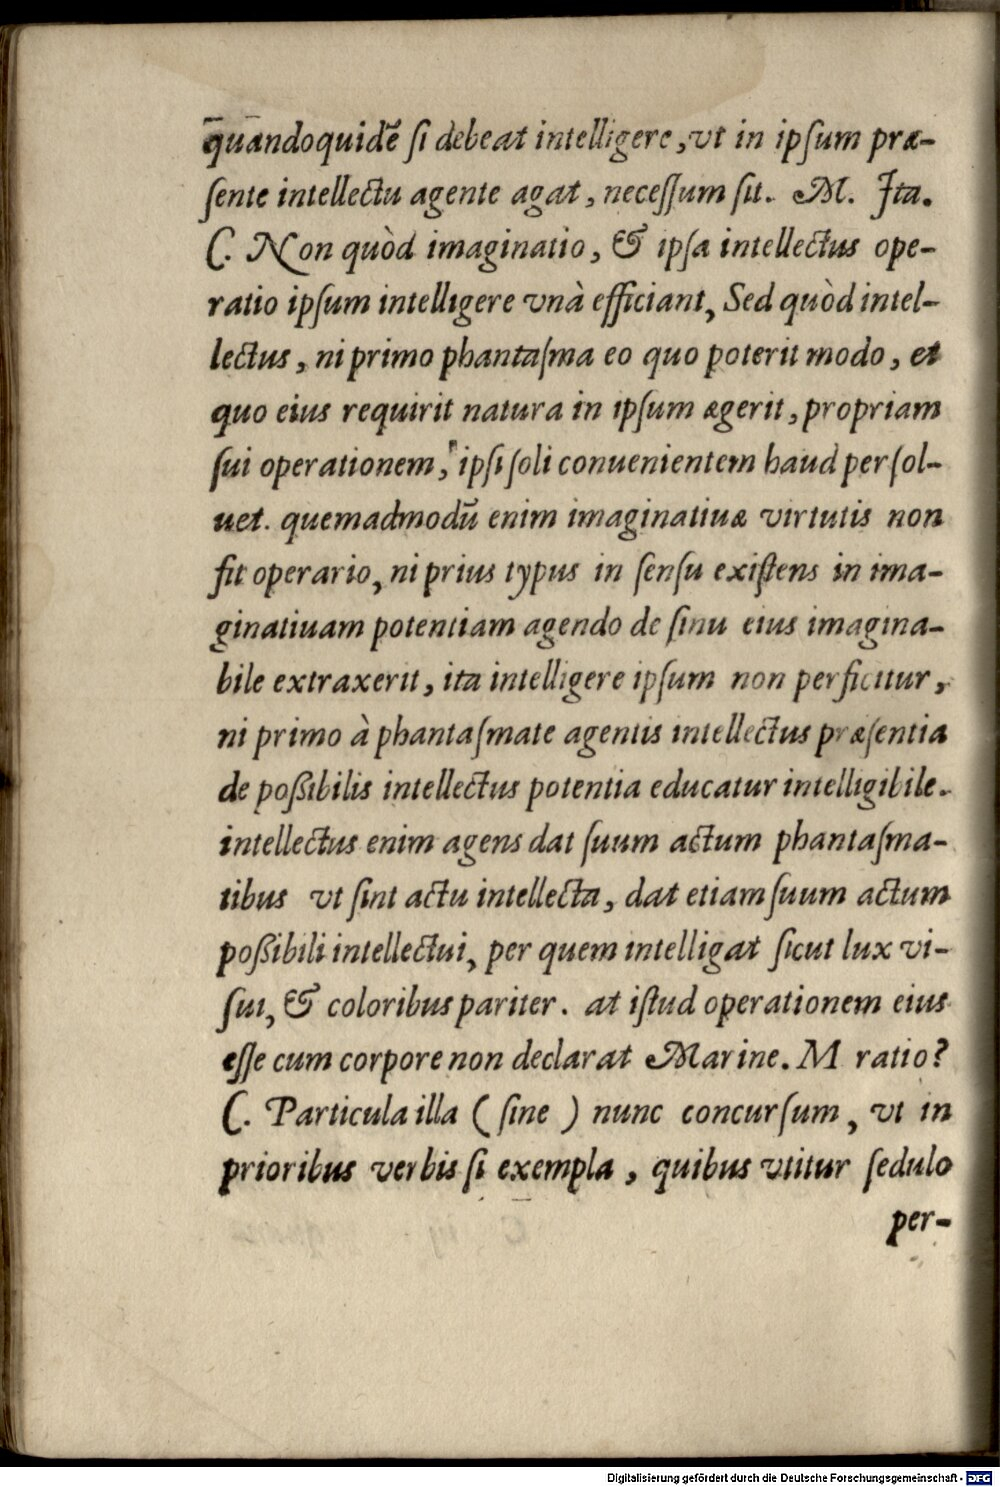 quandoquidē ſi debeat intelligere, vt in ipſum præ-
ſente intellectu agente agat, neceſſum ſit. M. Ita.
C. Non quòd imaginatio, & ipſa intellectus ope-
ratio ipſum intelligere vnà efficiant, Sed quòd intel-
lectus, ni primo phantaſma eo quo poterit modo, et
quo eius requirit natura in ipſum ægerit, propriam
ſui operationem, ipſi ſoli conuenientem haud perſol-
uet. quemadmodū enim imaginatiuæ virtutis non
fit operario, ni prius typus in ſenſu exiſtens in ima-
ginatiuam potentiam agendo de ſinu eius imagina-
bile extraxerit, ita intelligere ipſum non perficitur,
ni primo à phantaſmate agentis intellectus præſentia
de poßibilis intellectus potentia educatur intelligibile.
intellectus enim agens dat ſuum actum phantaſma-
tibus vt ſint actu intellecta, dat etiam ſuum actum
poßibili intellectui, per quem intelligat ſicut lux vi-
ſui, & coloribus pariter. at iſtud operationem eius
eſſe cum corpore non declarat Marine. M ratio?
C. Particula illa ( ſine ) nunc concurſum, vt in
prioribus verbis ſi exempla, quibus vtitur ſedulo
per-
Digitalisierung gefördert durch die Deutsche Forschungsgemeinschaft - DFG